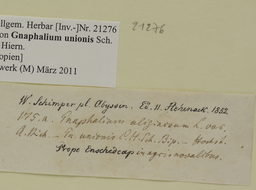 llgem. Herbar [Inv.-]Nr. 21276
on Gnaphalium unionis Sch.
Hiern.
opien]
werk (M) März 2011
21276
W. Schimper pl. Abyssin. Ed. II. Hohenack. 1852.
175. a. Gnaphalium uliginosum L. var.
A. Rich. — Gn. unionis C. H. Sch. Bip. — Hochst.
Prope Enschedcap in agris mosalibus.